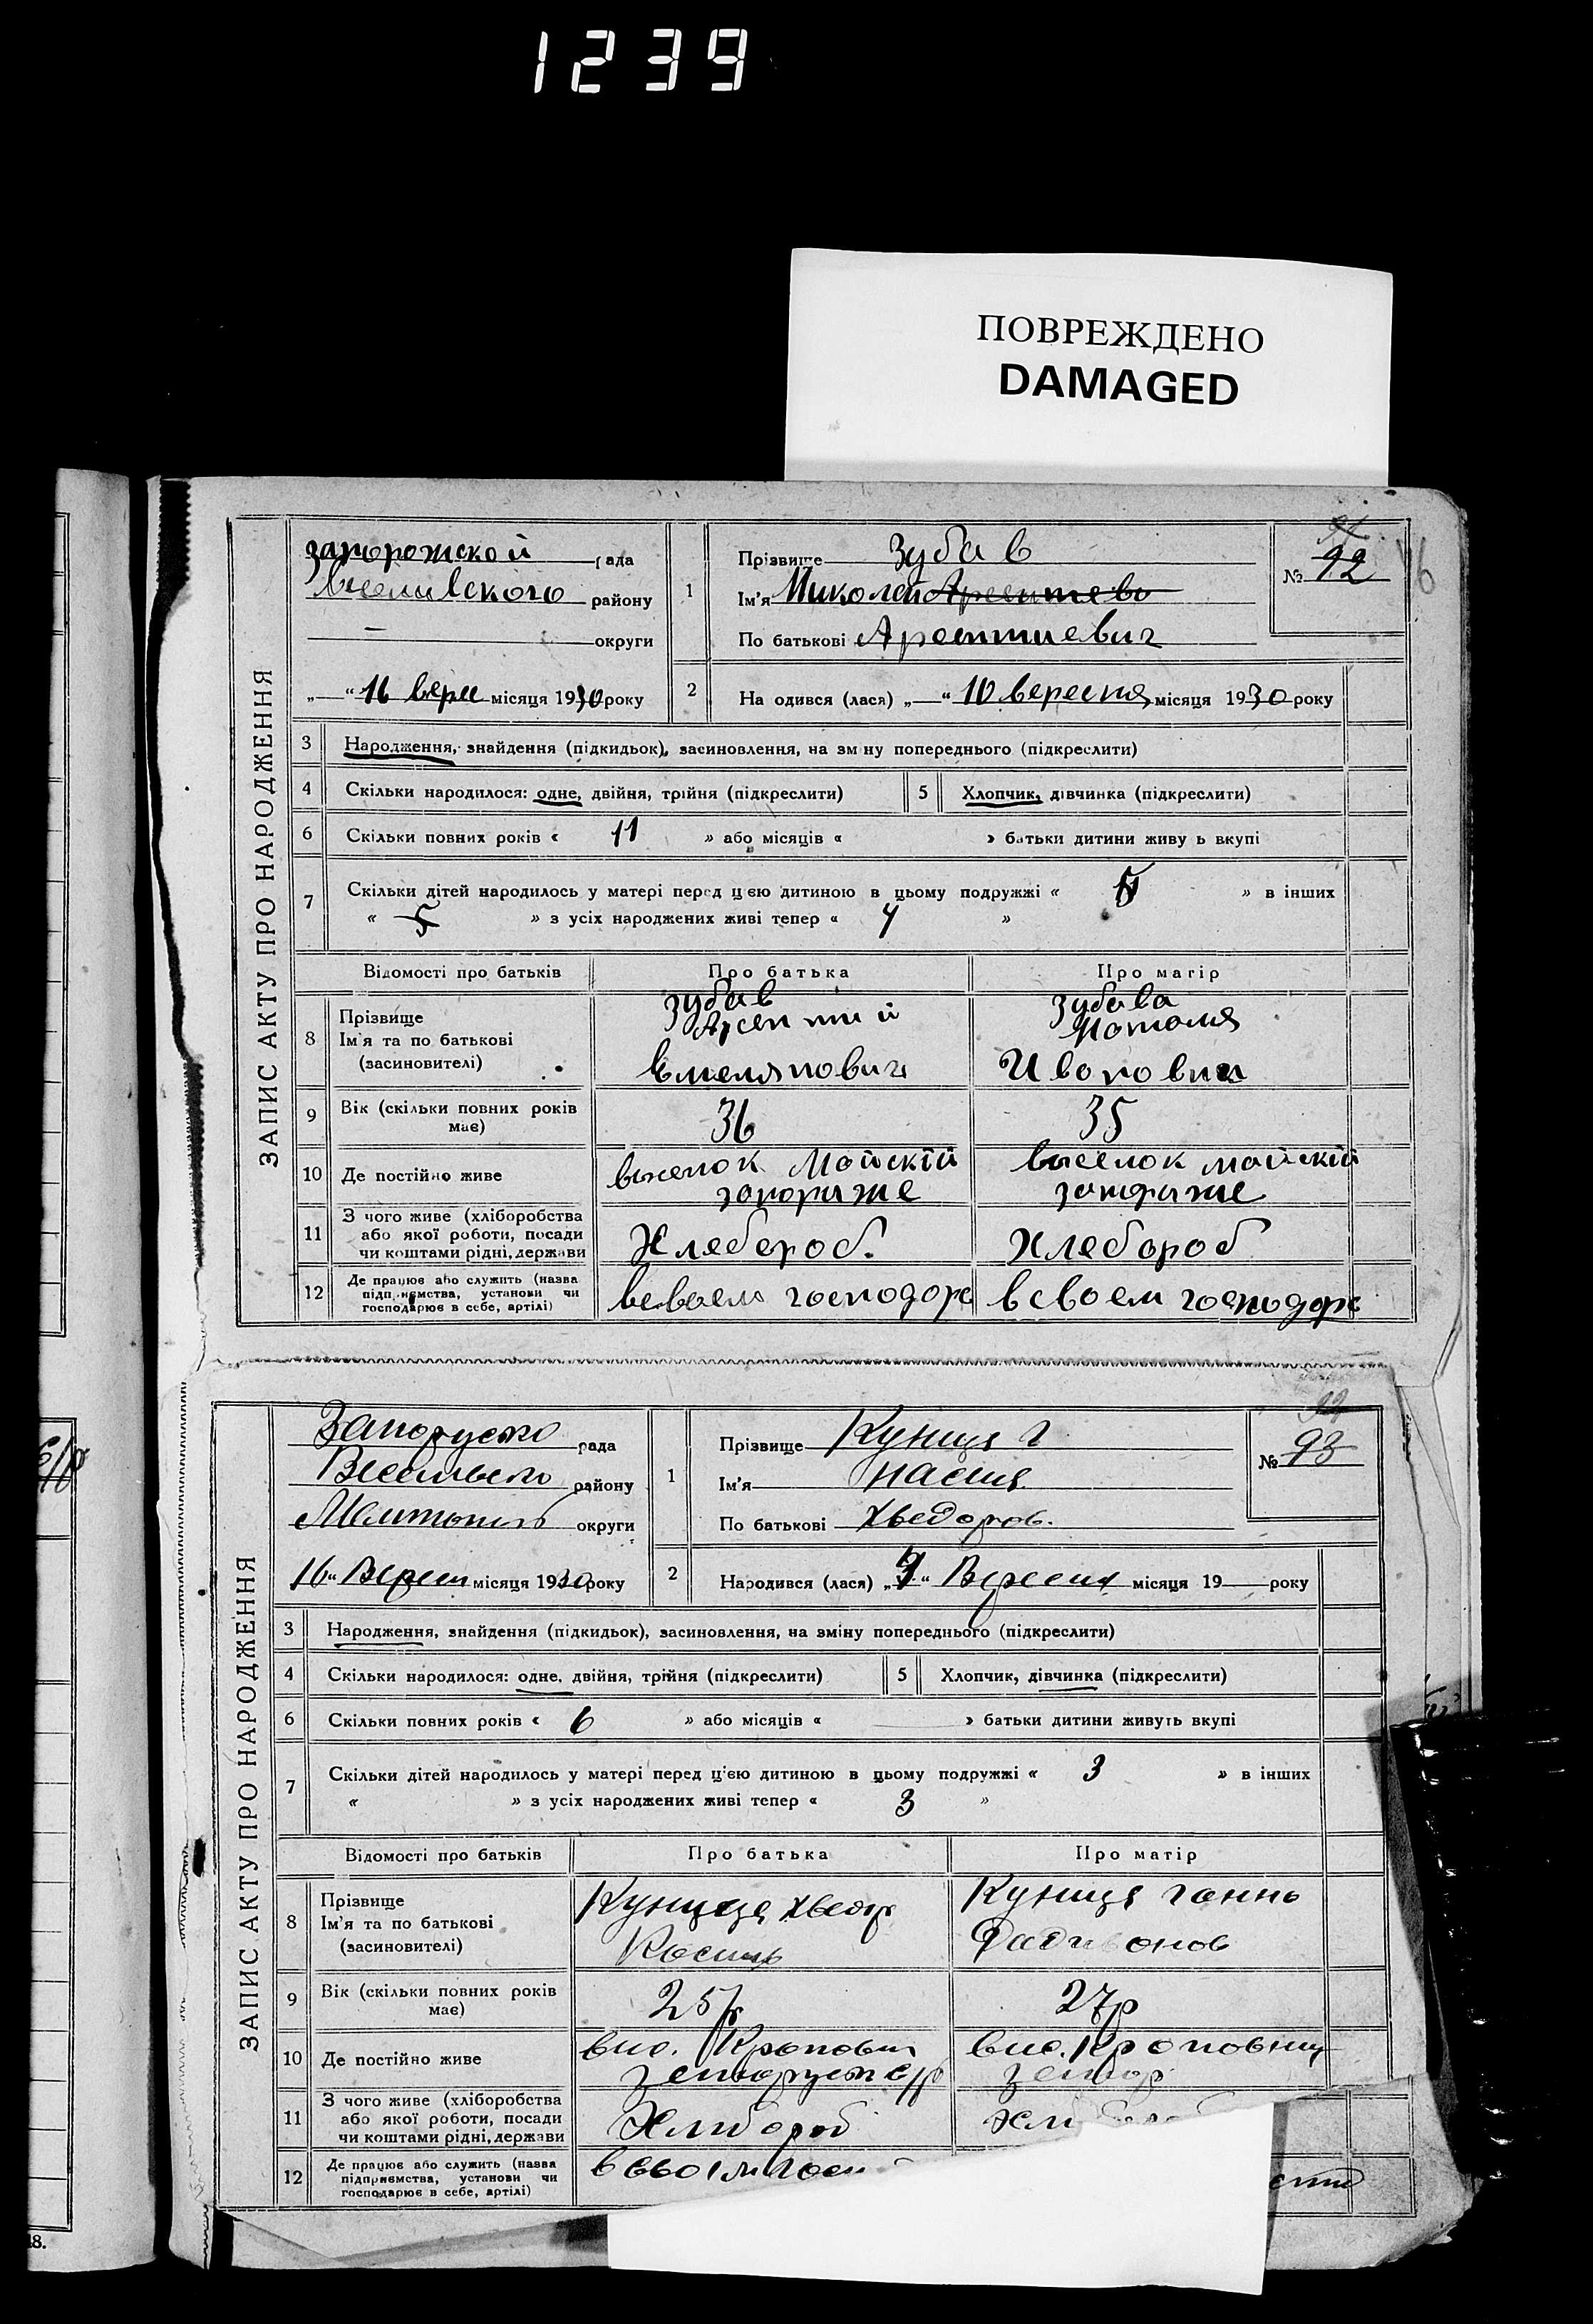 1239
ПОВРЕЖДЕНО
DAMAGED
ЗАПИС АКТУ ПРО НАРОДЖЕННЯ
запорожской рада
району
округи
„ “ 16 верес місяця 1930 року
1
Прізвище Зубав
Ім'я Миколай Арсентево
По батькові Арсентиевич
№ 92
2
На одився (лася) „ “ 10 вересня місяця 1930 року
3 Народження, знайдення (підкидьок), засиновлення, на зм ну попереднього (підкреслити)
4 Скільки народилося: одне, двійня, трійня (підкреслити)
5 Хлопчик, дівчинка (підкреслити)
6 Скільки повних років « 11 » або місяців « » батьки дитини живу ь вкупі
7 Скільки дітей народилось у матері перед цією дитиною в цьому подружжі « » в інших
« » з усіх народжених живі тепер « 4 »
Відомості про батьків Про батька Про матір
8 Прізвище
Ім'я та по батькові
(засиновителі)
зубав
Арсентий
Емелянович
зубава
Наталя
Ивановна
9 Вік (скільки повних років
має)
36
35
10 Де постійно живе
выселок Майскій
запориже
выселок майскій
запориже
11 З чого живе (хліборобства
або якої роботи, посади
чи коштами рідні, держави
Хлебороб.
Хлебороб
12 Де працює або служить (назва
підприємства, установи чи
господарює в себе, артілі)
всвоем господарс
всвоем господарс
ЗАПИС АКТУ ПРО НАРОДЖЕННЯ
рада
району
округи
16 “ Верес місяця 1930 року
1
Прізвище Куниця
Ім'я Настя
По батькові Хведоров.
№ 93
2
Народився (лася) „ “ Вересня місяця 19 року
3 Народження, знайдення (підкидьок), засиновлення, на зміну попереднього (підкреслити)
4 Скільки народилося: одне, двійня, трійня (підкреслити)
5 Хлопчик, дівчинка (підкреслити)
6 Скільки повних років « 6 » або місяців « » батьки дитини живуть вкупі
7 Скільки дітей народилось у матері перед цією дитиною в цьому подружжі « 3 » в інших
« » з усіх народжених живі тепер « 3 »
Відомості про батьків Про батька Про матір
8 Прізвище
Ім'я та по батькові
(засиновителі)
Куниця Хведор
Куниця Ганна
9 Вік (скільки повних років
має)
25р
27р
10 Де постійно живе
вис.
вис.
11 З чого живе (хліборобства
або якої роботи, посади
чи коштами рідні, держави
Хлибороб
12 Де працює або служить (назва
підприємства, установи чи
господарює в себе, артілі)
48.